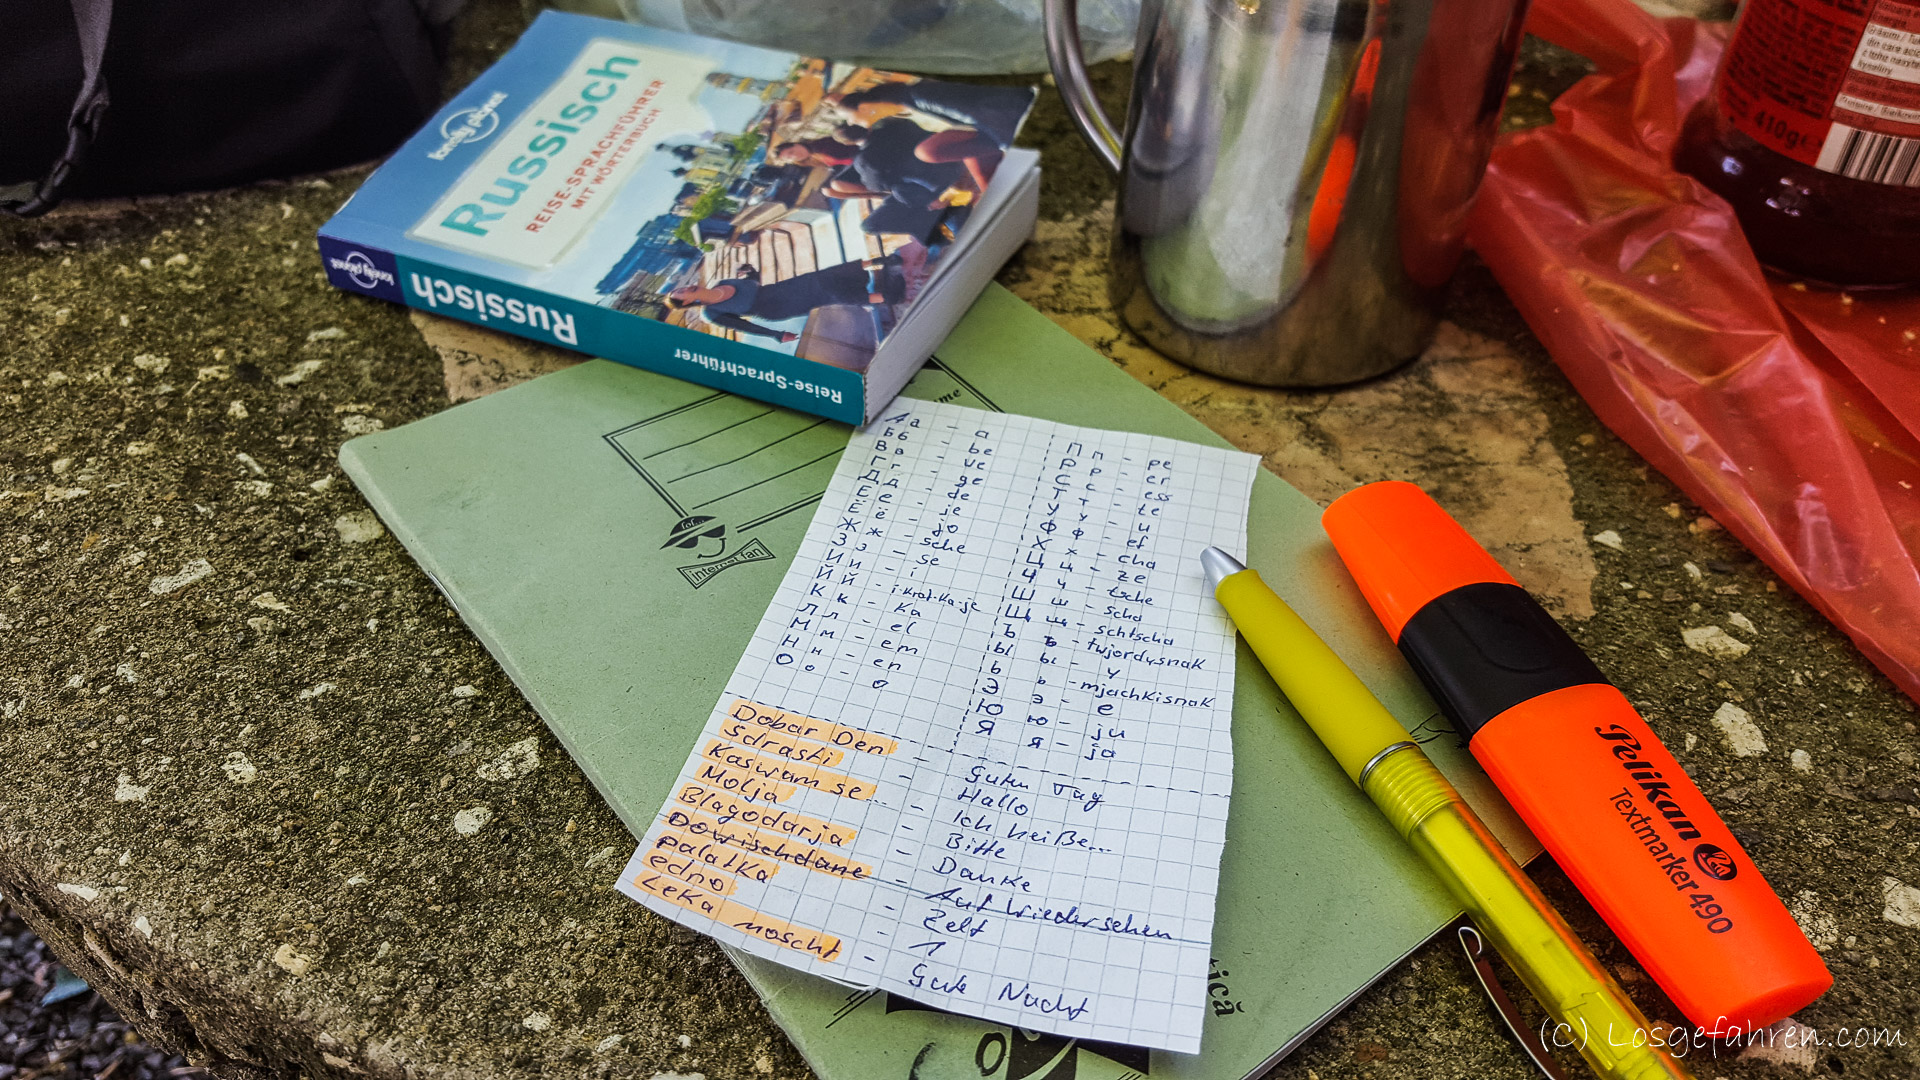 lonely planet
Russisch
REISE-SPRACHFÜHRER
MIT WÖRTERBUCH
lonely planet
Russisch
Reise-Sprachführer
ume
lol...
internet fan
А а - a
Б б - be
В в - ve
Г г - ge
Д д - de
Е е - je
Ё ё - jo
Ж ж - sche
З з - se
И и - i
Й й - i-krat-ka-je
К к - ka
Л л - el
М м - em
Н н - en
О о - o
П п - pe
Р р - er
С с - ess
Т т - te
У у - u
Ф ф - ef
Х х - cha
Ц ц - ze
Ч ч - tsche
Ш ш - scha
Щ щ - schtscha
Ъ ъ - twjordysnak
Ы ы - y
Ь ь - mjachkisnak
Э э - e
Ю ю - ju
Я я - ja
Dobar Den - Guten Tag
Sdrasti - Hallo
Kaswam se... - Ich heiße...
Molja - Bitte
Blagodarja - Danke
Dowischdane - Auf Wiedersehen
palatka - Zelt
edno - 1
Leka noscht - Gute Nacht
ică
Pelikan
Textmarker 490
410g e
(C) Losgefahren.com